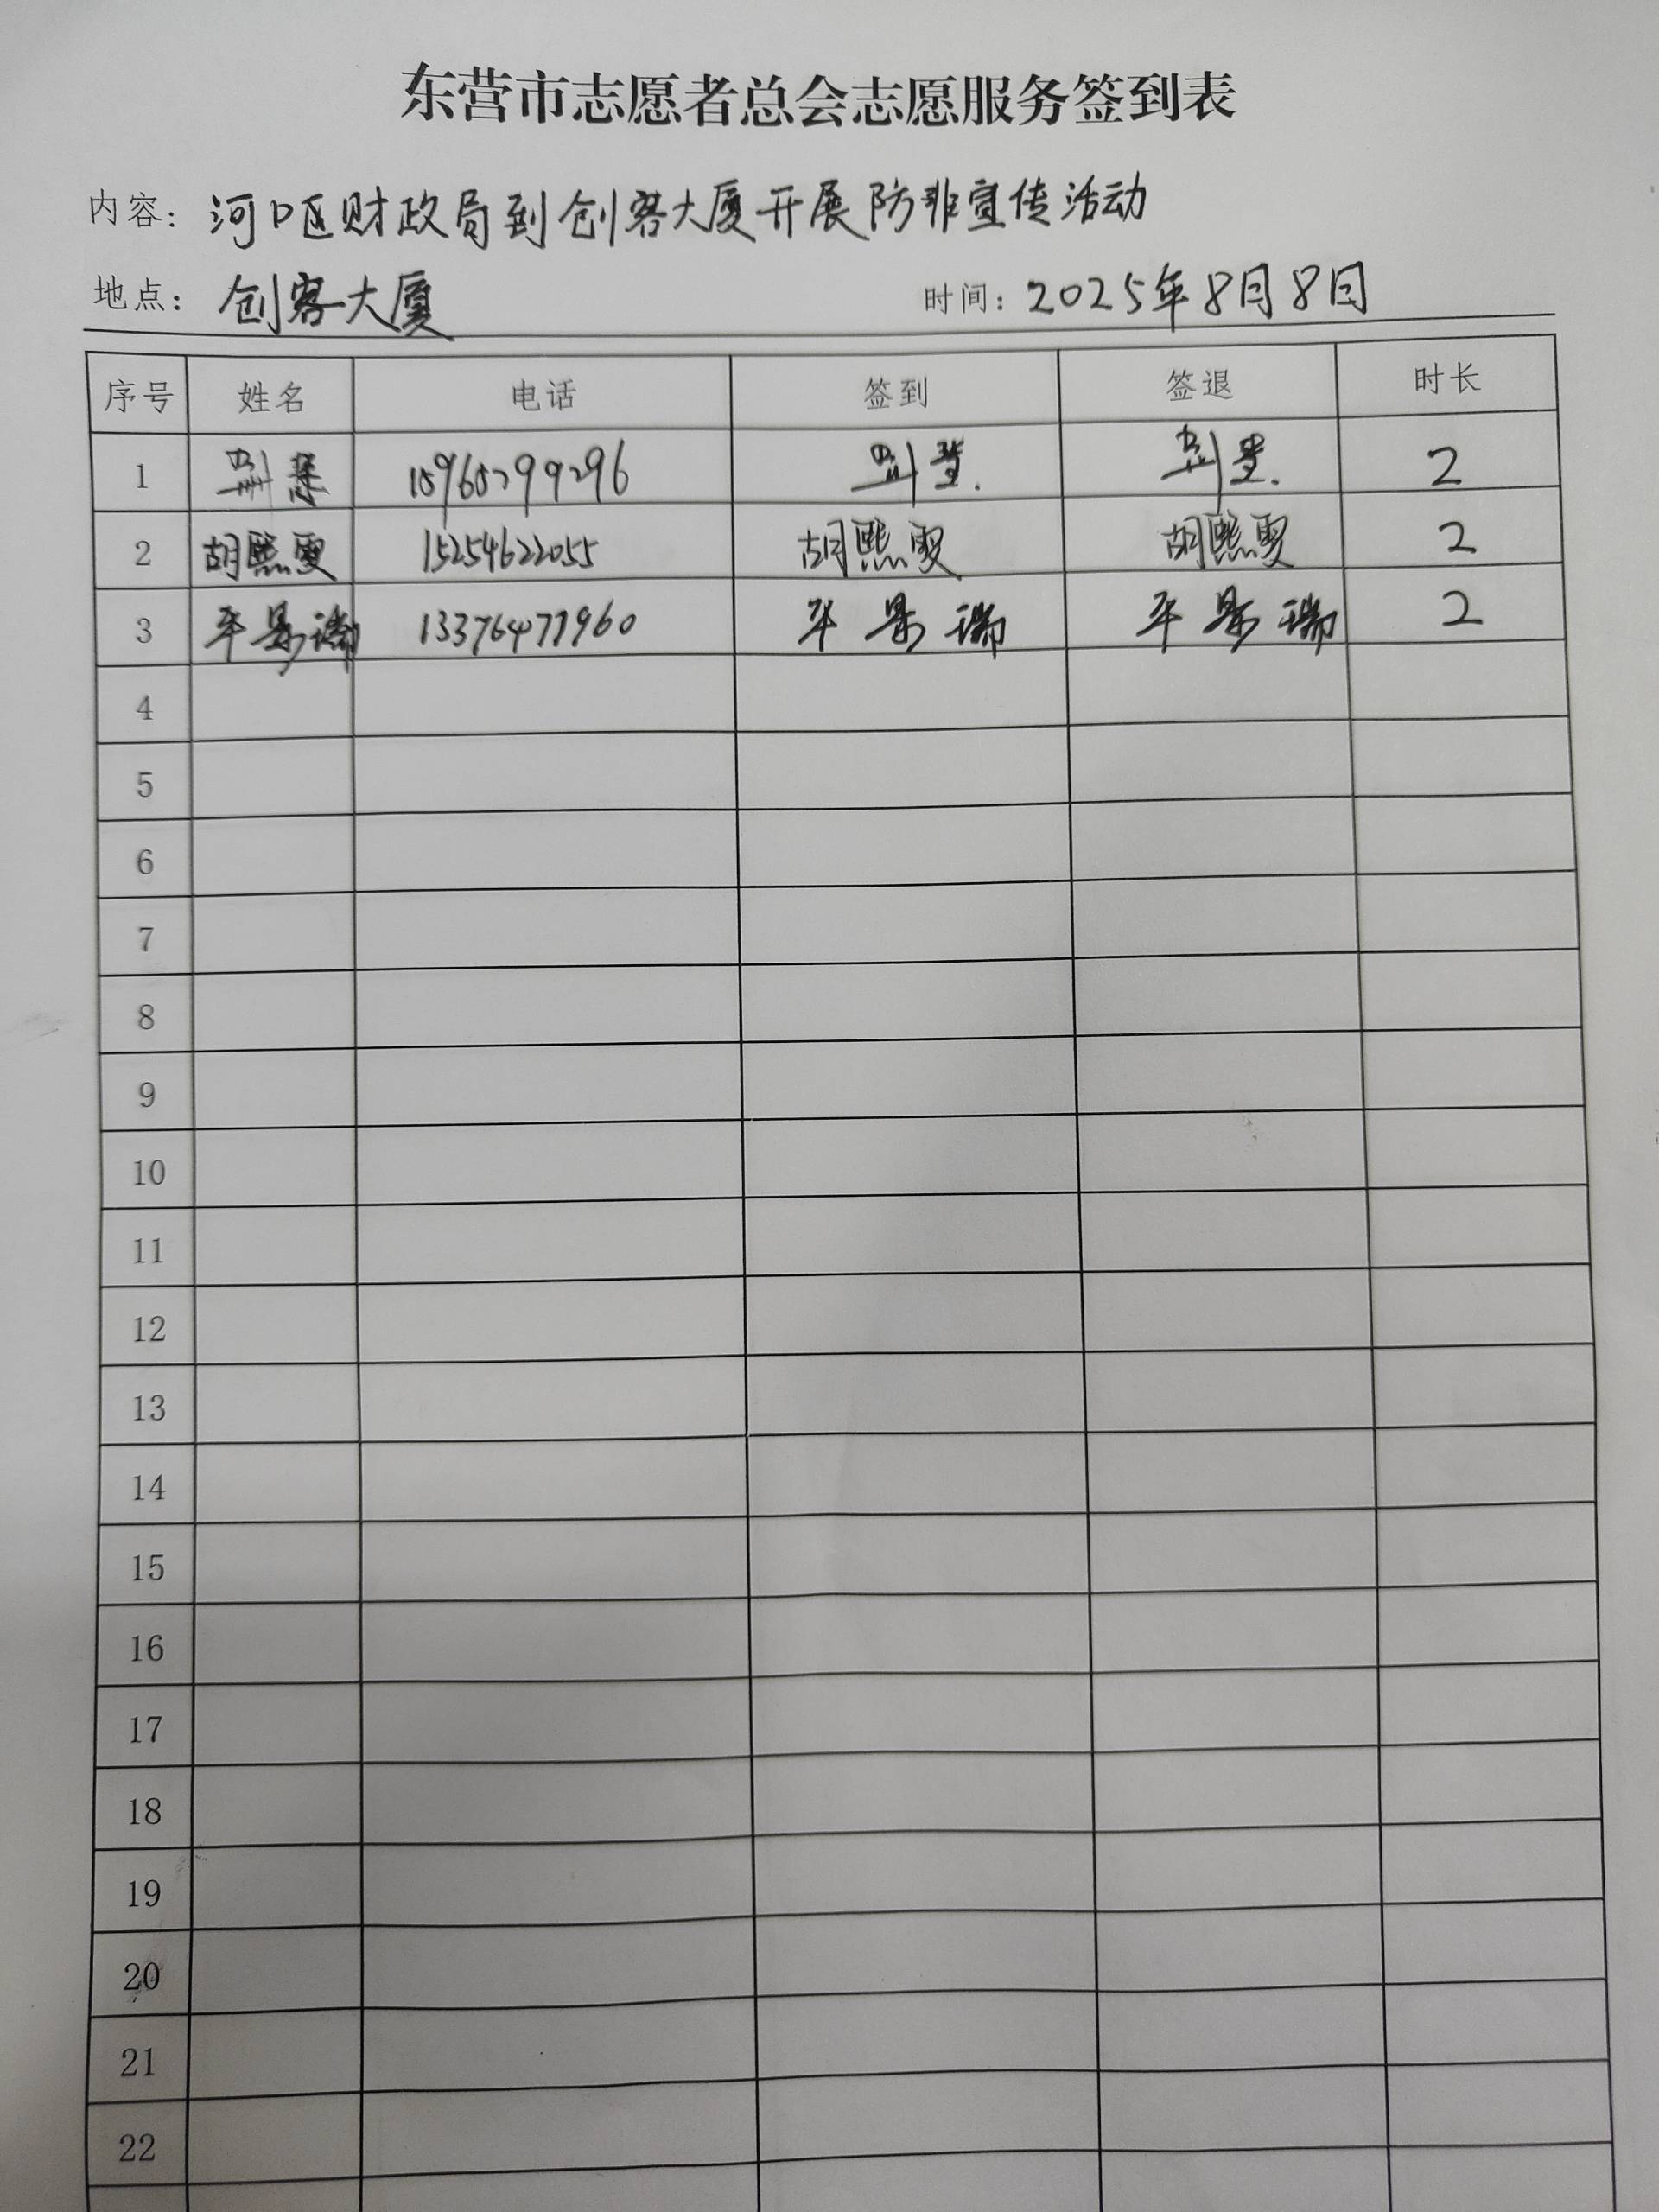 东营市志愿者总会志愿服务签到表
内容：河口区财政局到创客大厦开展防非宣传活动
地点：创客大厦 时间：2025年8月8日
序号 姓名 电话 签到 签退 时长
1 2
2 胡熙雯 15254622055 胡熙雯 胡熙雯 2
3 平景瑞 13376477960 平景瑞 平景瑞 2
4
5
6
7
8
9
10
11
12
13
14
15
16
17
18
19
20
21
22